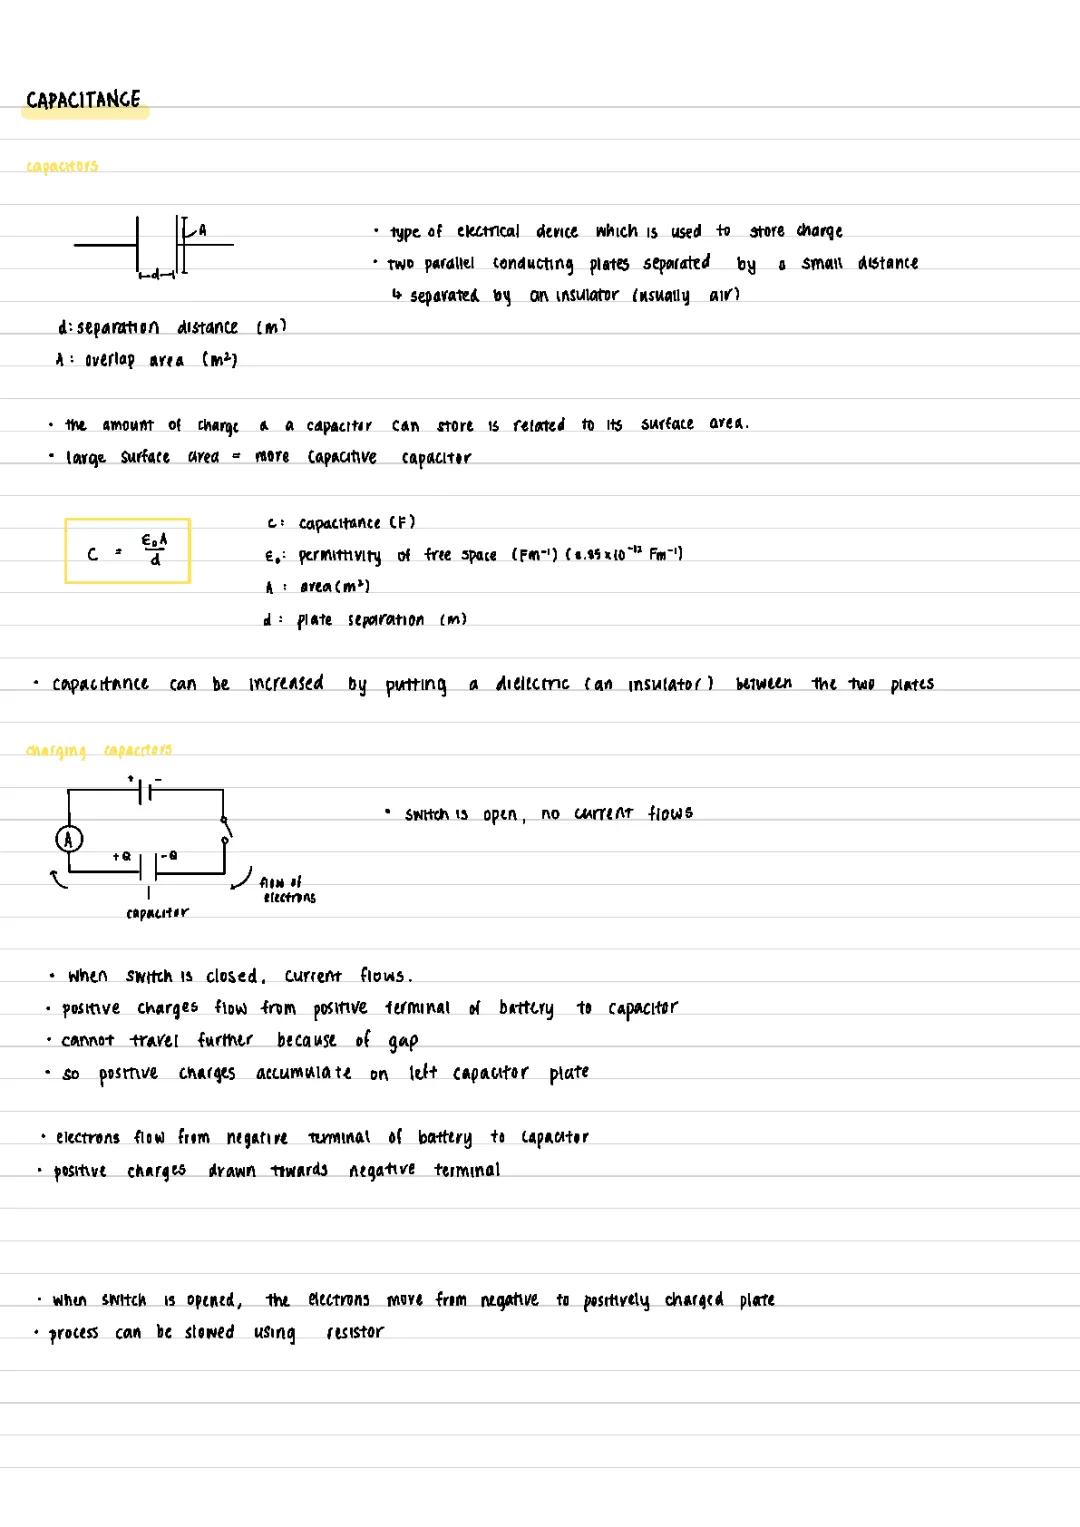 CAPACITANCE
capacitors
A
d
• type of electrical device which is used to store charge
• two parallel conducting plates separated by a small distance
↳ separated by an insulator (usually air)
d: separation distance (m)
A: overlap area (m²)
• the amount of charge a a capacitor can store is related to its surface area.
• large surface area = more capacitive capacitor
C = ε₀A/d
C: capacitance (F)
ε₀: permittivity of free space (Fm⁻¹) (8.85 x 10⁻¹² Fm⁻¹)
A: area (m²)
d: plate separation (m)
• capacitance can be increased by putting a dielectric (an insulator) between the two plates
charging capacitors
+ -
• switch is open, no current flows
A
+Q -Q
flow of
electrons
capacitor
• when switch is closed, current flows.
• positive charges flow from positive terminal of battery to capacitor
• cannot travel further because of gap
• so positive charges accumulate on left capacitor plate
• electrons flow from negative terminal of battery to capacitor
• positive charges drawn towards negative terminal
• when switch is opened, the electrons move from negative to positively charged plate
• process can be slowed using resistor